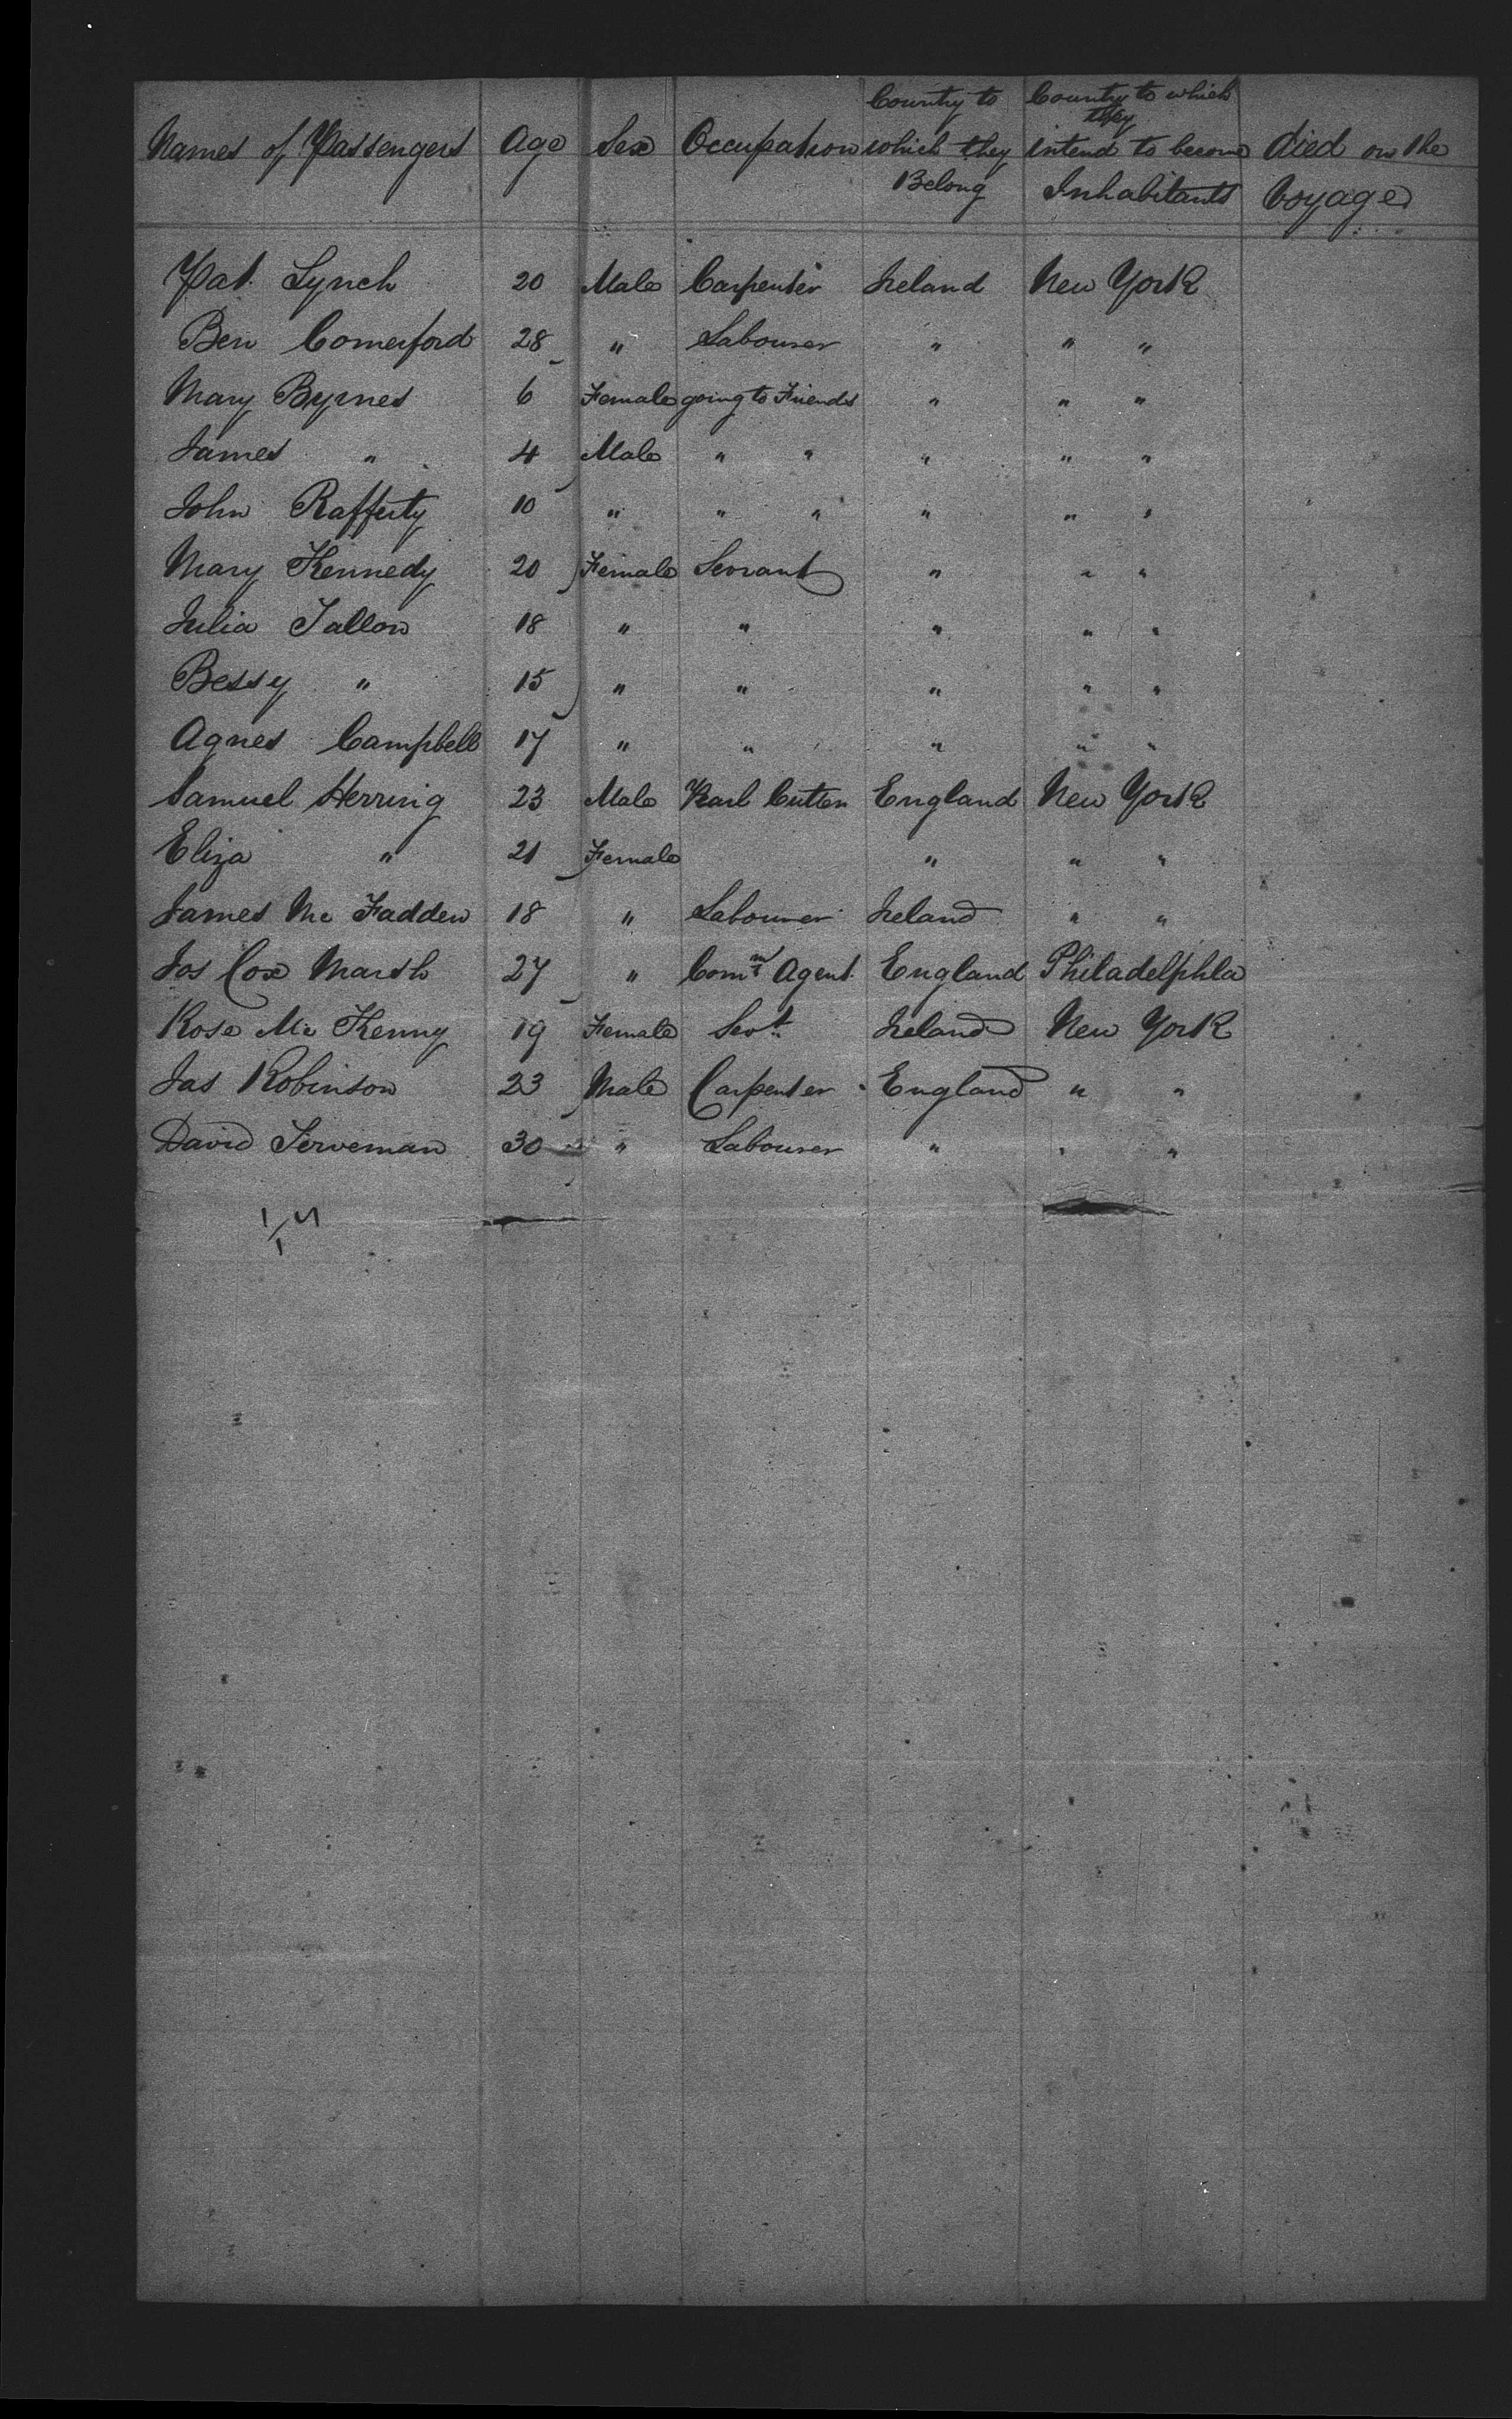 Names of Passengers Age Sex Occupation Country to which they Belong Country to which they intend to become Inhabitants died on the Voyage
Pat Lynch 20 Male Carpenter Ireland New York
Ben Comerford 28 " Labourer " " "
Mary Byrnes 6 Female going to Friends " " "
James " 4 Male " " " " "
John Rafferty 10 " " " " " "
Mary Kennedy 20 Female Servant " " "
Julia Tallow 18 " " " " "
Bessy " 15 " " " " "
Agnes Campbell 17 " " " " "
Samuel Herring 23 Male Cutter England New York
Eliza " 21 Female " " "
James Mc Fadden 18 " Labourer Ireland " "
Jos Cox Marsh 27 " Comm Agent England Philadelphia
Rose Mc Kenny 19 Female Servt Ireland New York
Jas Robinson 23 Male Carpenter England " "
David 30 " Labourer " " "